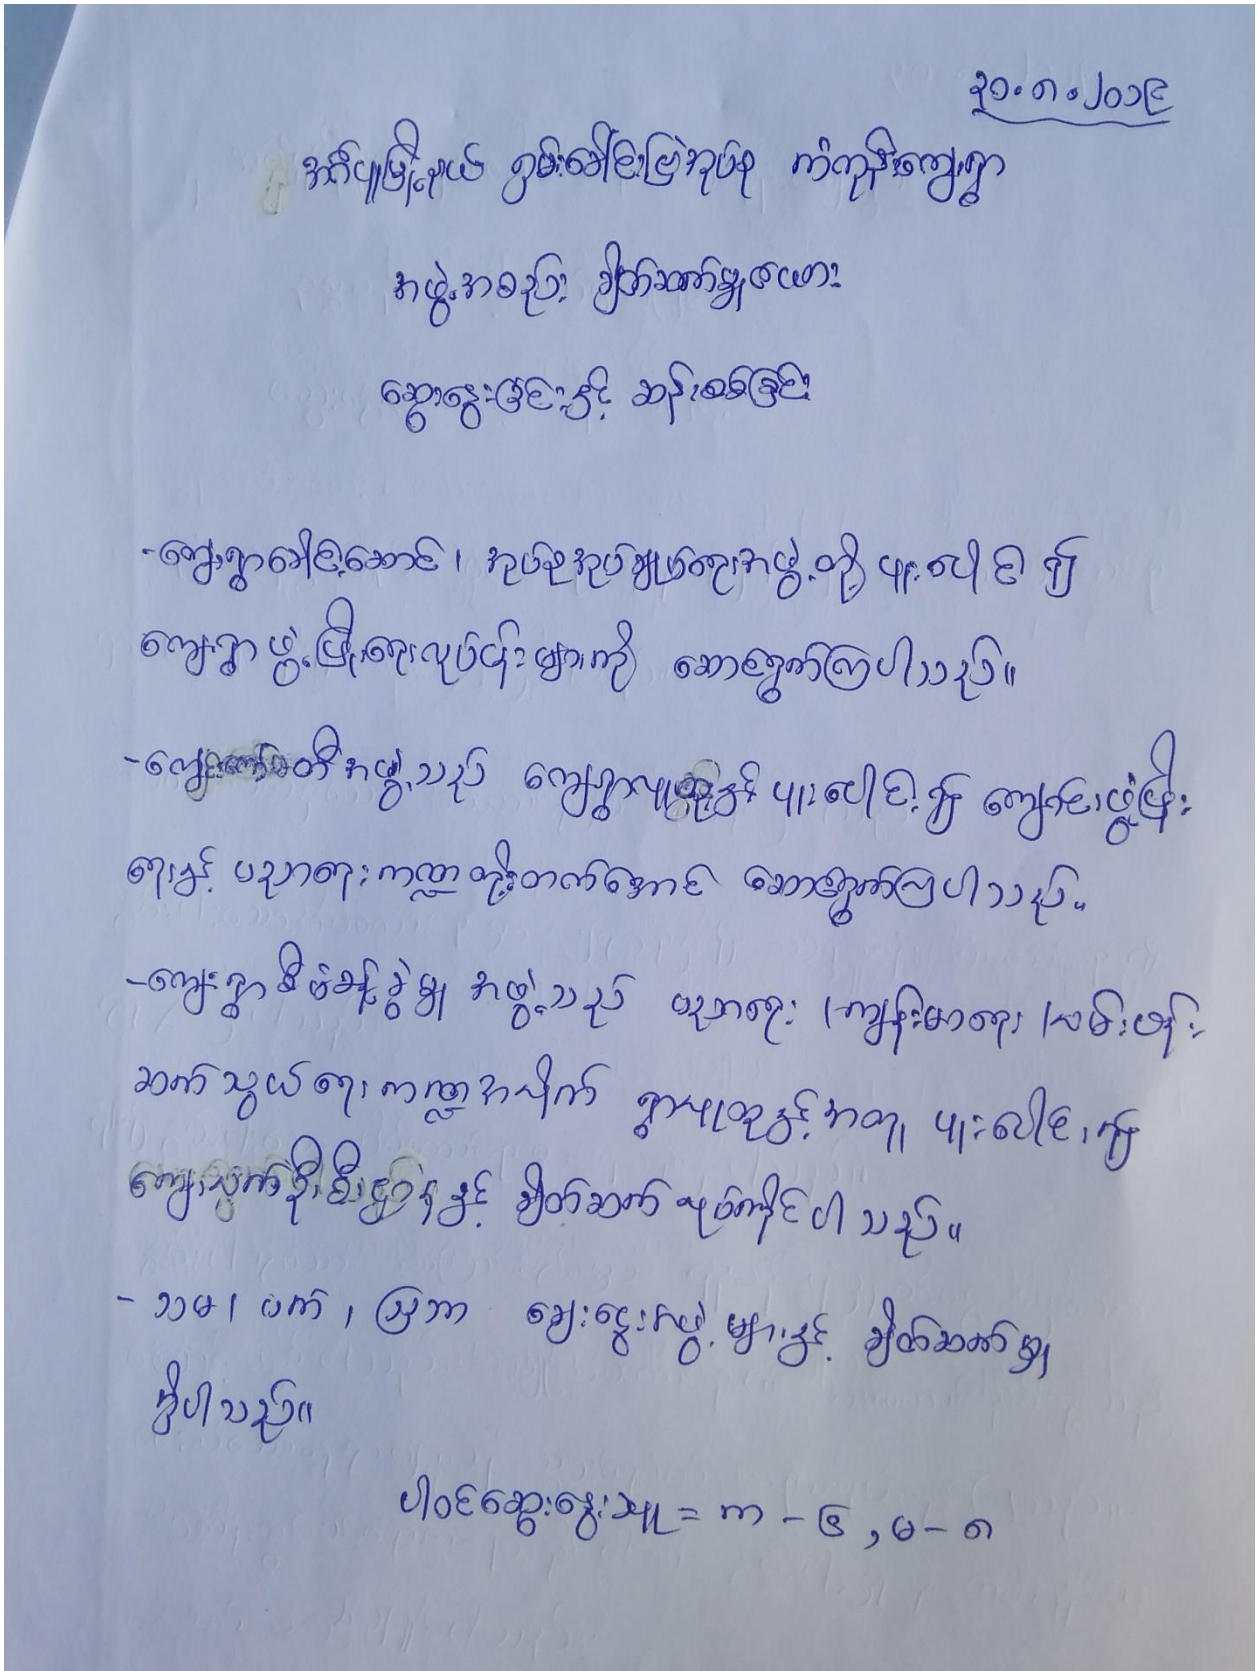 ၃၁.၈.၂၀၁၉
အင်္ဂပူမြို့နယ် ငှမ်းခေါင်းပြဲအုပ်စု ကံကုန်းကျေးရွာ
အဖွဲ့အစည်း ချိတ်ဆက်မှုဇယား
ဆွေးနွေးခြင်းနှင့် ဆန်းစစ်ခြင်း
-ကျေးရွာခေါင်းဆောင်၊ အုပ်စုအုပ်ချုပ်ရေးအဖွဲ့တို့ ပူးပေါင်း၍
ကျေးရွာဖွံ့ဖြိုးရေးလုပ်ငန်းများကို ဆောင်ရွက်ကြပါသည်။
-ကျောင်းကော်မတီအဖွဲ့သည် ကျေးရွာလူထုနှင့် ပူးပေါင်း၍ ကျောင်းဖွံ့ဖြိုး
ရေးနှင့် ပညာရေးကဏ္ဍတိုးတက်အောင် ဆောင်ရွက်ကြပါသည်။
-ကျေးရွာစီမံခန့်ခွဲမှု အဖွဲ့သည် ပညာရေး၊ ကျန်းမာရေး၊ လမ်းပန်း
ဆက်သွယ်ရေးကဏ္ဍအလိုက် ရွာလူထုနှင့်အတူ ပူးပေါင်း၍
ကျေးလက်ဦးစီးဌာနနှင့် ချိတ်ဆက်လုပ်ကိုင်ပါသည်။
- သမ၊ ပက်၊ ဩဘာ ချေးငွေအဖွဲ့များနှင့် ချိတ်ဆက်မှု
ရှိပါသည်။
ပါဝင်ဆွေးနွေးသူ = ကာ - ၄ , မ - ၈